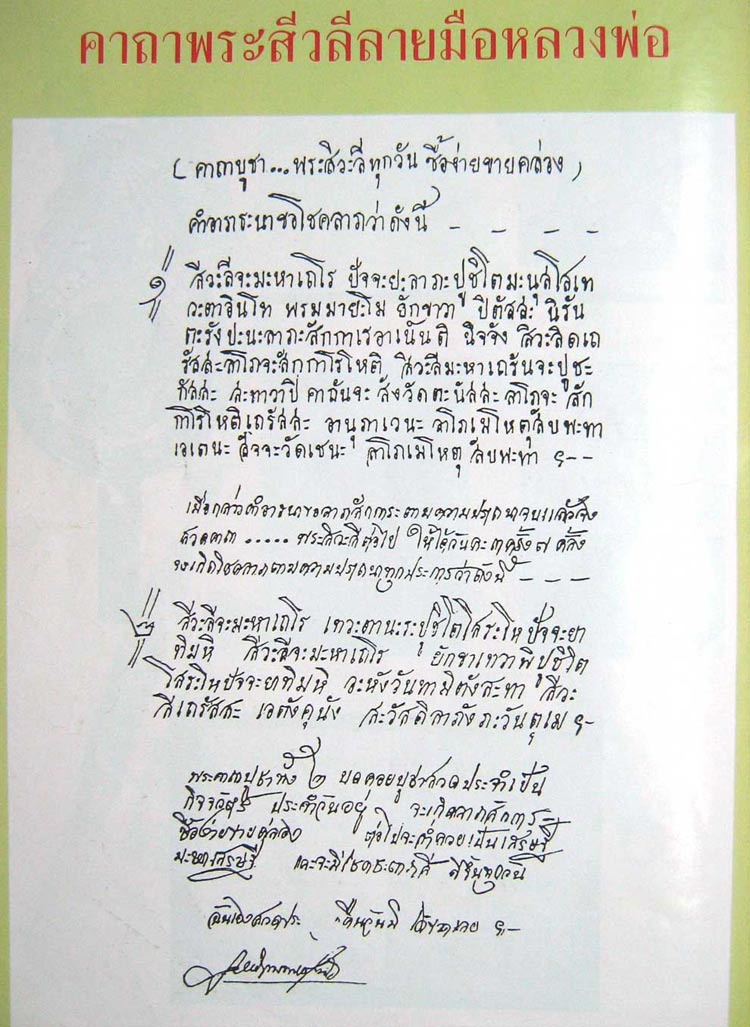 คาถาพระสีวลีลายมือหลวงพ่อ
(คาถาบูชา...พระสิวะลีทุกวัน ซื้อง่ายขายคล่อง)
คำอาราธะนาขอโชคลาภว่าดังนี้ - - - -
๑ สีวะลีจะมะหาเถโร ปัจจะยะลาภะปูชิโตมะนุสโสเท
วะตาอินโท พรมมายะโม ยักขาวา ปิตัสสะ นิรัน
ตะรังปะนะลาภะสักกาเรอาเนันติ นิจจัง สิวะลิดเถ
รัสสะลาโภจะสักกาโรโหติ สิวะลีมะหาเถรันจะปูชะ
กัสสะ สะทาวาปี คาถันจะ สังวัดตะนัสสะ ลาโภจะ สัก
กาโรโหติเถรัสสะ อานุภาเวนะ ลาโภเมโหตุสับพะทา
เอเตนะ สัจจะวัดเชนะ ลาโภเมโหตุ สับพะทา ฯ--
เมื่อกล่าวคำอาราธนาขอลาภสักการะตามความปรารถนาจบแล้วจึง
สวดคาถา ..... พระสิวะลีต่อไป ให้ได้วันละ ๓ ครั้ง ๗ ครั้ง
จะเกิดโชคลาภตามความปรารถนาทุกประการว่าดังนี้ - - - -
๒ สีวะลีจะมะหาเถโร เทวะตานะระปูชิโตโสระโหปัจจะยา
ทิมหิ สีวะลีจะมะหาเถโร ยักขาเทวาพิปูชิโต
โสระโหปัจจะยาทิมหิ อะหังวันทามิตังสะทา สีวะ
ลีเถรัสสะ เอตังคุนัง สะวัสดิลาภังภะวันตุเม ฯ-
พระคาถาบูชาทั้ง ๒ บท คอยบูชาสวดประจำเป็น
กิจวัตร ประจำวันอยู่ จะเกิดลาภสักการะ
ซื้อง่ายขายคล่อง ต่อไปจะร่ำรวยเป็นเศรษฐี
มะหาเศรษฐี และจะมีโชคชะตาดี ดีขึ้นทุกวัน